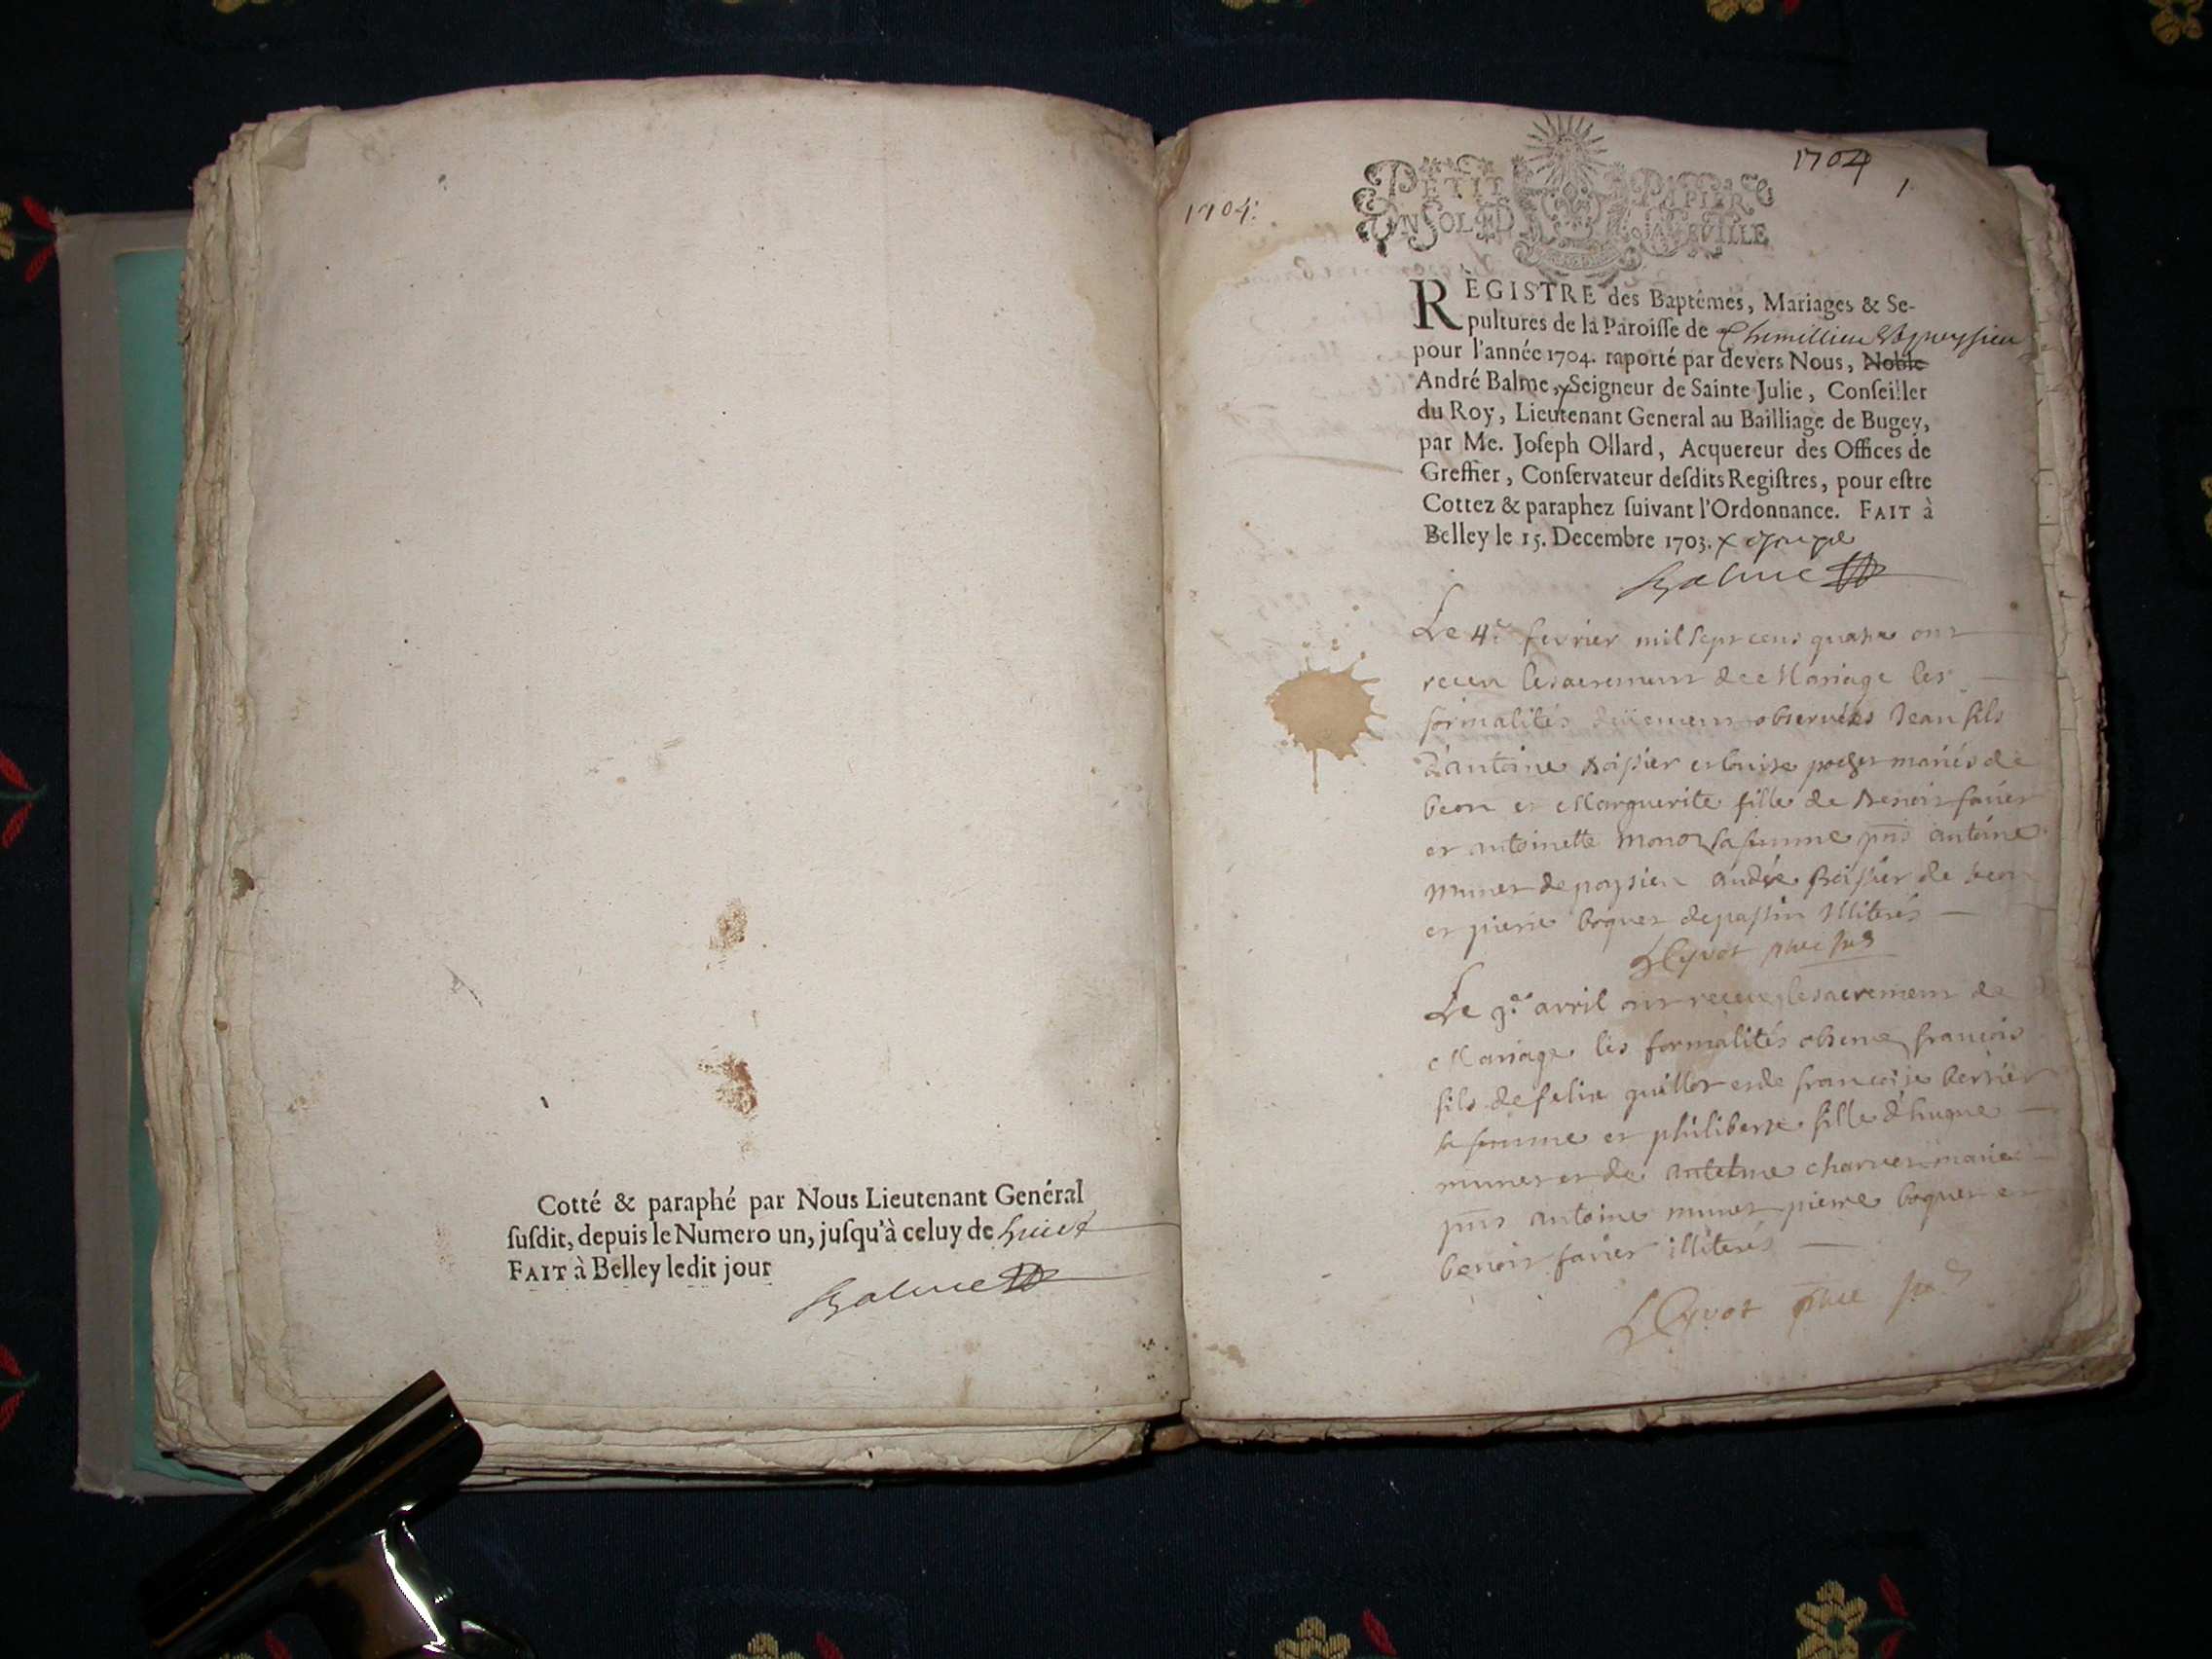 Cotté & paraphé par Nous Lieutenant Genéral
ſuſdit, depuis le Numero un, juſqu'à celuy de huict
FAIT à Belley ledit jour
Balme
1704.
1704
1.
PETIT PAPIER
UN SOL LA F
REGISTRE des Baptêmes, Mariages & Se-
pultures de la Paroiſſe de Chemillieu
pour l'année 1704. raporté par devers Nous, Noble
André Balme, x Seigneur de Sainte Julie, Conſeiller
du Roy, Lieutenant General au Bailliage de Bugey,
par Me. Joſeph Ollard, Acquereur des Offices de
Greffier, Conſervateur deſdits Regiſtres, pour eſtre
Cottez & paraphez ſuivant l'Ordonnance. FAIT à
Belley le 15. Decembre 1703. x
Balme
Le 4e fevrier mil sept cens quatre ont
receu le sacrement de Mariage les
formalités düement observées Jean fils
d'antoine et mariés de
beon et Marguerite fille de Benoit favier
et antoinette sa femme pns antoine
munet de poysieu andré de beon
et pierre boquet de passin illiterés
Le avril ont receu le sacrement de
Mariage les formalités francois
fils de felix guillot et de francoise
sa femme et philiberte fille d'hugue
munet et de antelme charvet mariés
pns antoine munet pierre boquet et
benoit favier illiterés